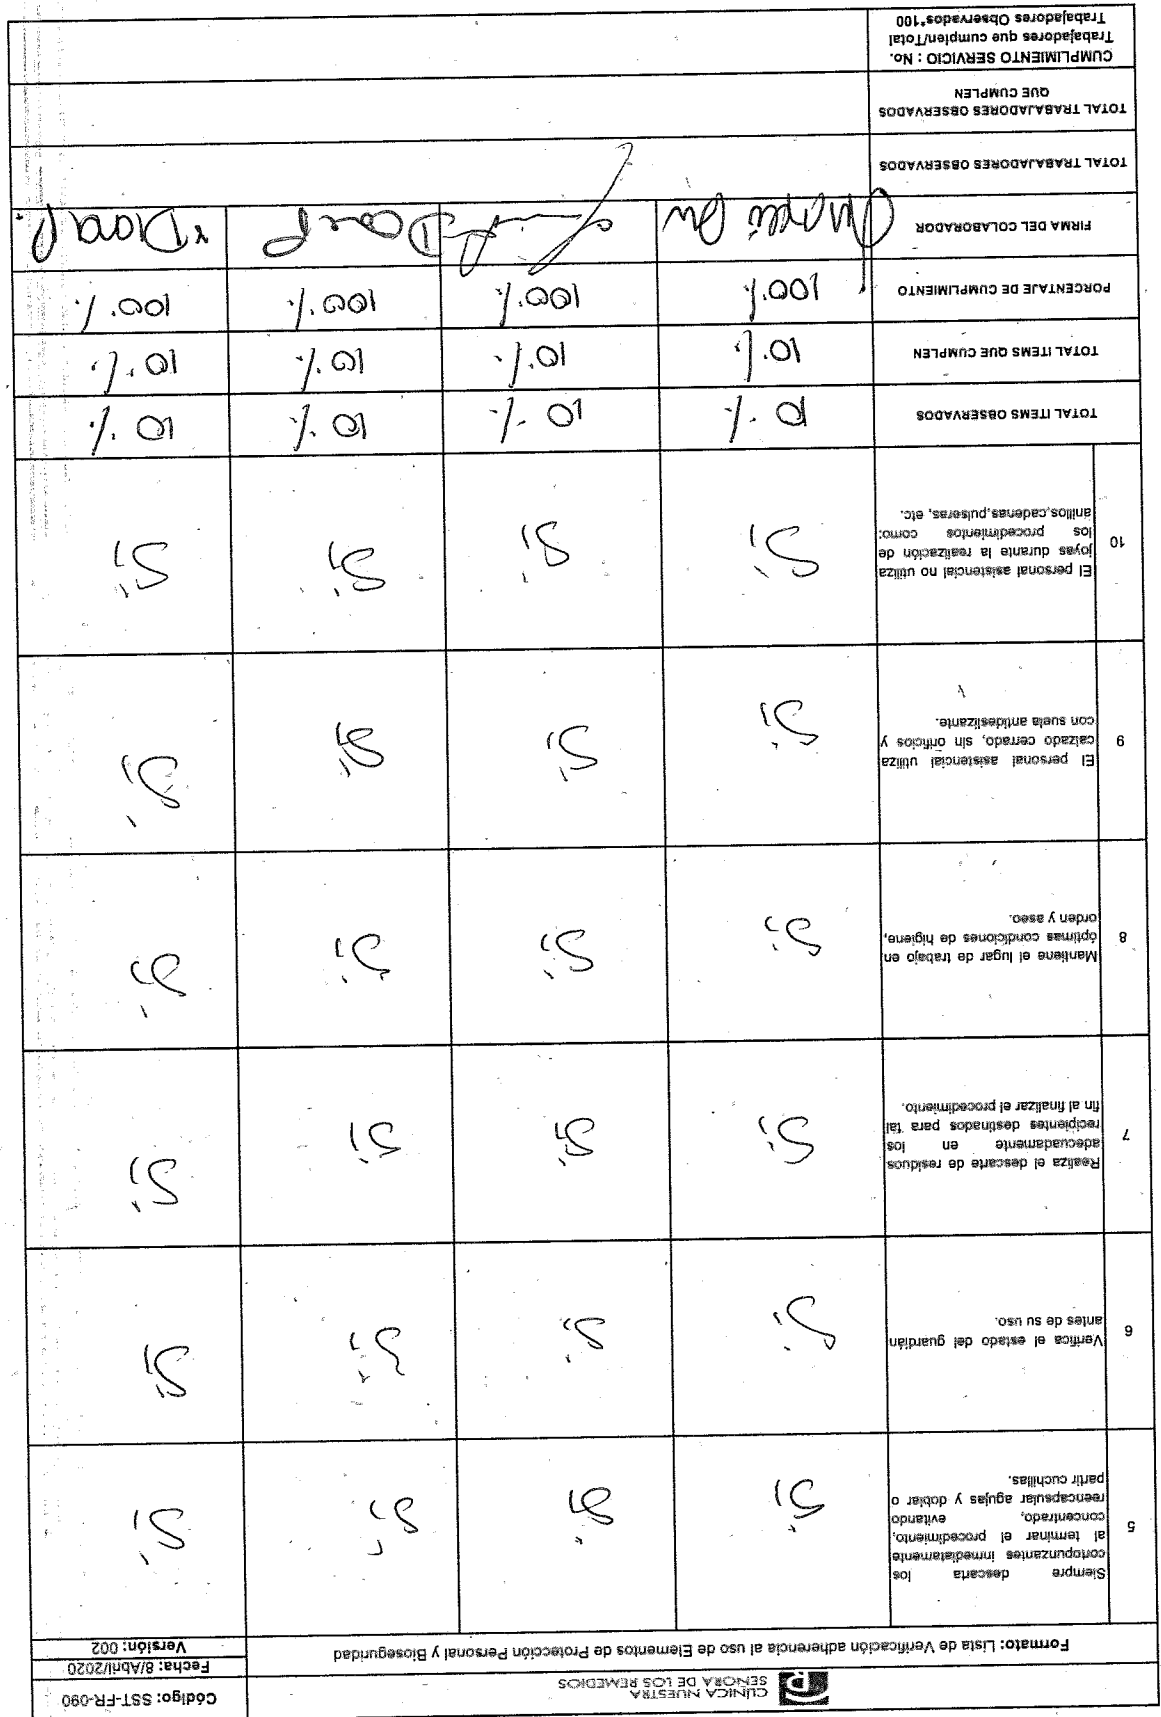 CLÍNICA NUESTRA
SEÑORA DE LOS REMEDIOS
Código: SST-FR-090
Fecha: 8/Abril/2020
Formato: Lista de Verificación adherencia al uso de Elementos de Protección Personal y Bioseguridad
Versión: 002
5
Siempre descarta los
cortopunzantes inmediatamente
al terminar el procedimiento,
concentrado, evitando
reencapsular agujas y doblar o
partir cuchillas.
Si Si Si Si
6
Verifica el estado del guardián
antes de su uso.
Si Si Si Si
7
Realiza el descarte de residuos
adecuadamente en los
recipientes destinados para tal
fin al finalizar el procedimiento.
Si Si Si Si
8
Mantiene el lugar de trabajo en
óptimas condiciones de higiene,
orden y aseo.
Si Si Si Si
9
El personal asistencial utiliza
calzado cerrado, sin orificios y
con suela antideslizante.
Si Si Si Si
10
El personal asistencial no utiliza
joyas durante la realización de
los procedimientos como:
anillos,cadenas,pulseras, etc.
Si Si Si Si
TOTAL ITEMS OBSERVADOS 10 % 10 % 10 % 10 %
TOTAL ITEMS QUE CUMPLEN 10 % 10 % 10 % 10 %
PORCENTAJE DE CUMPLIMIENTO 100 % 100 % 100 % 100 %
FIRMA DEL COLABORADOR
TOTAL TRABAJADORES OBSERVADOS
TOTAL TRABAJADORES OBSERVADOS
QUE CUMPLEN
CUMPLIMIENTO SERVICIO : No.
Trabajadores que cumplen/Total
Trabajadores Observados*100